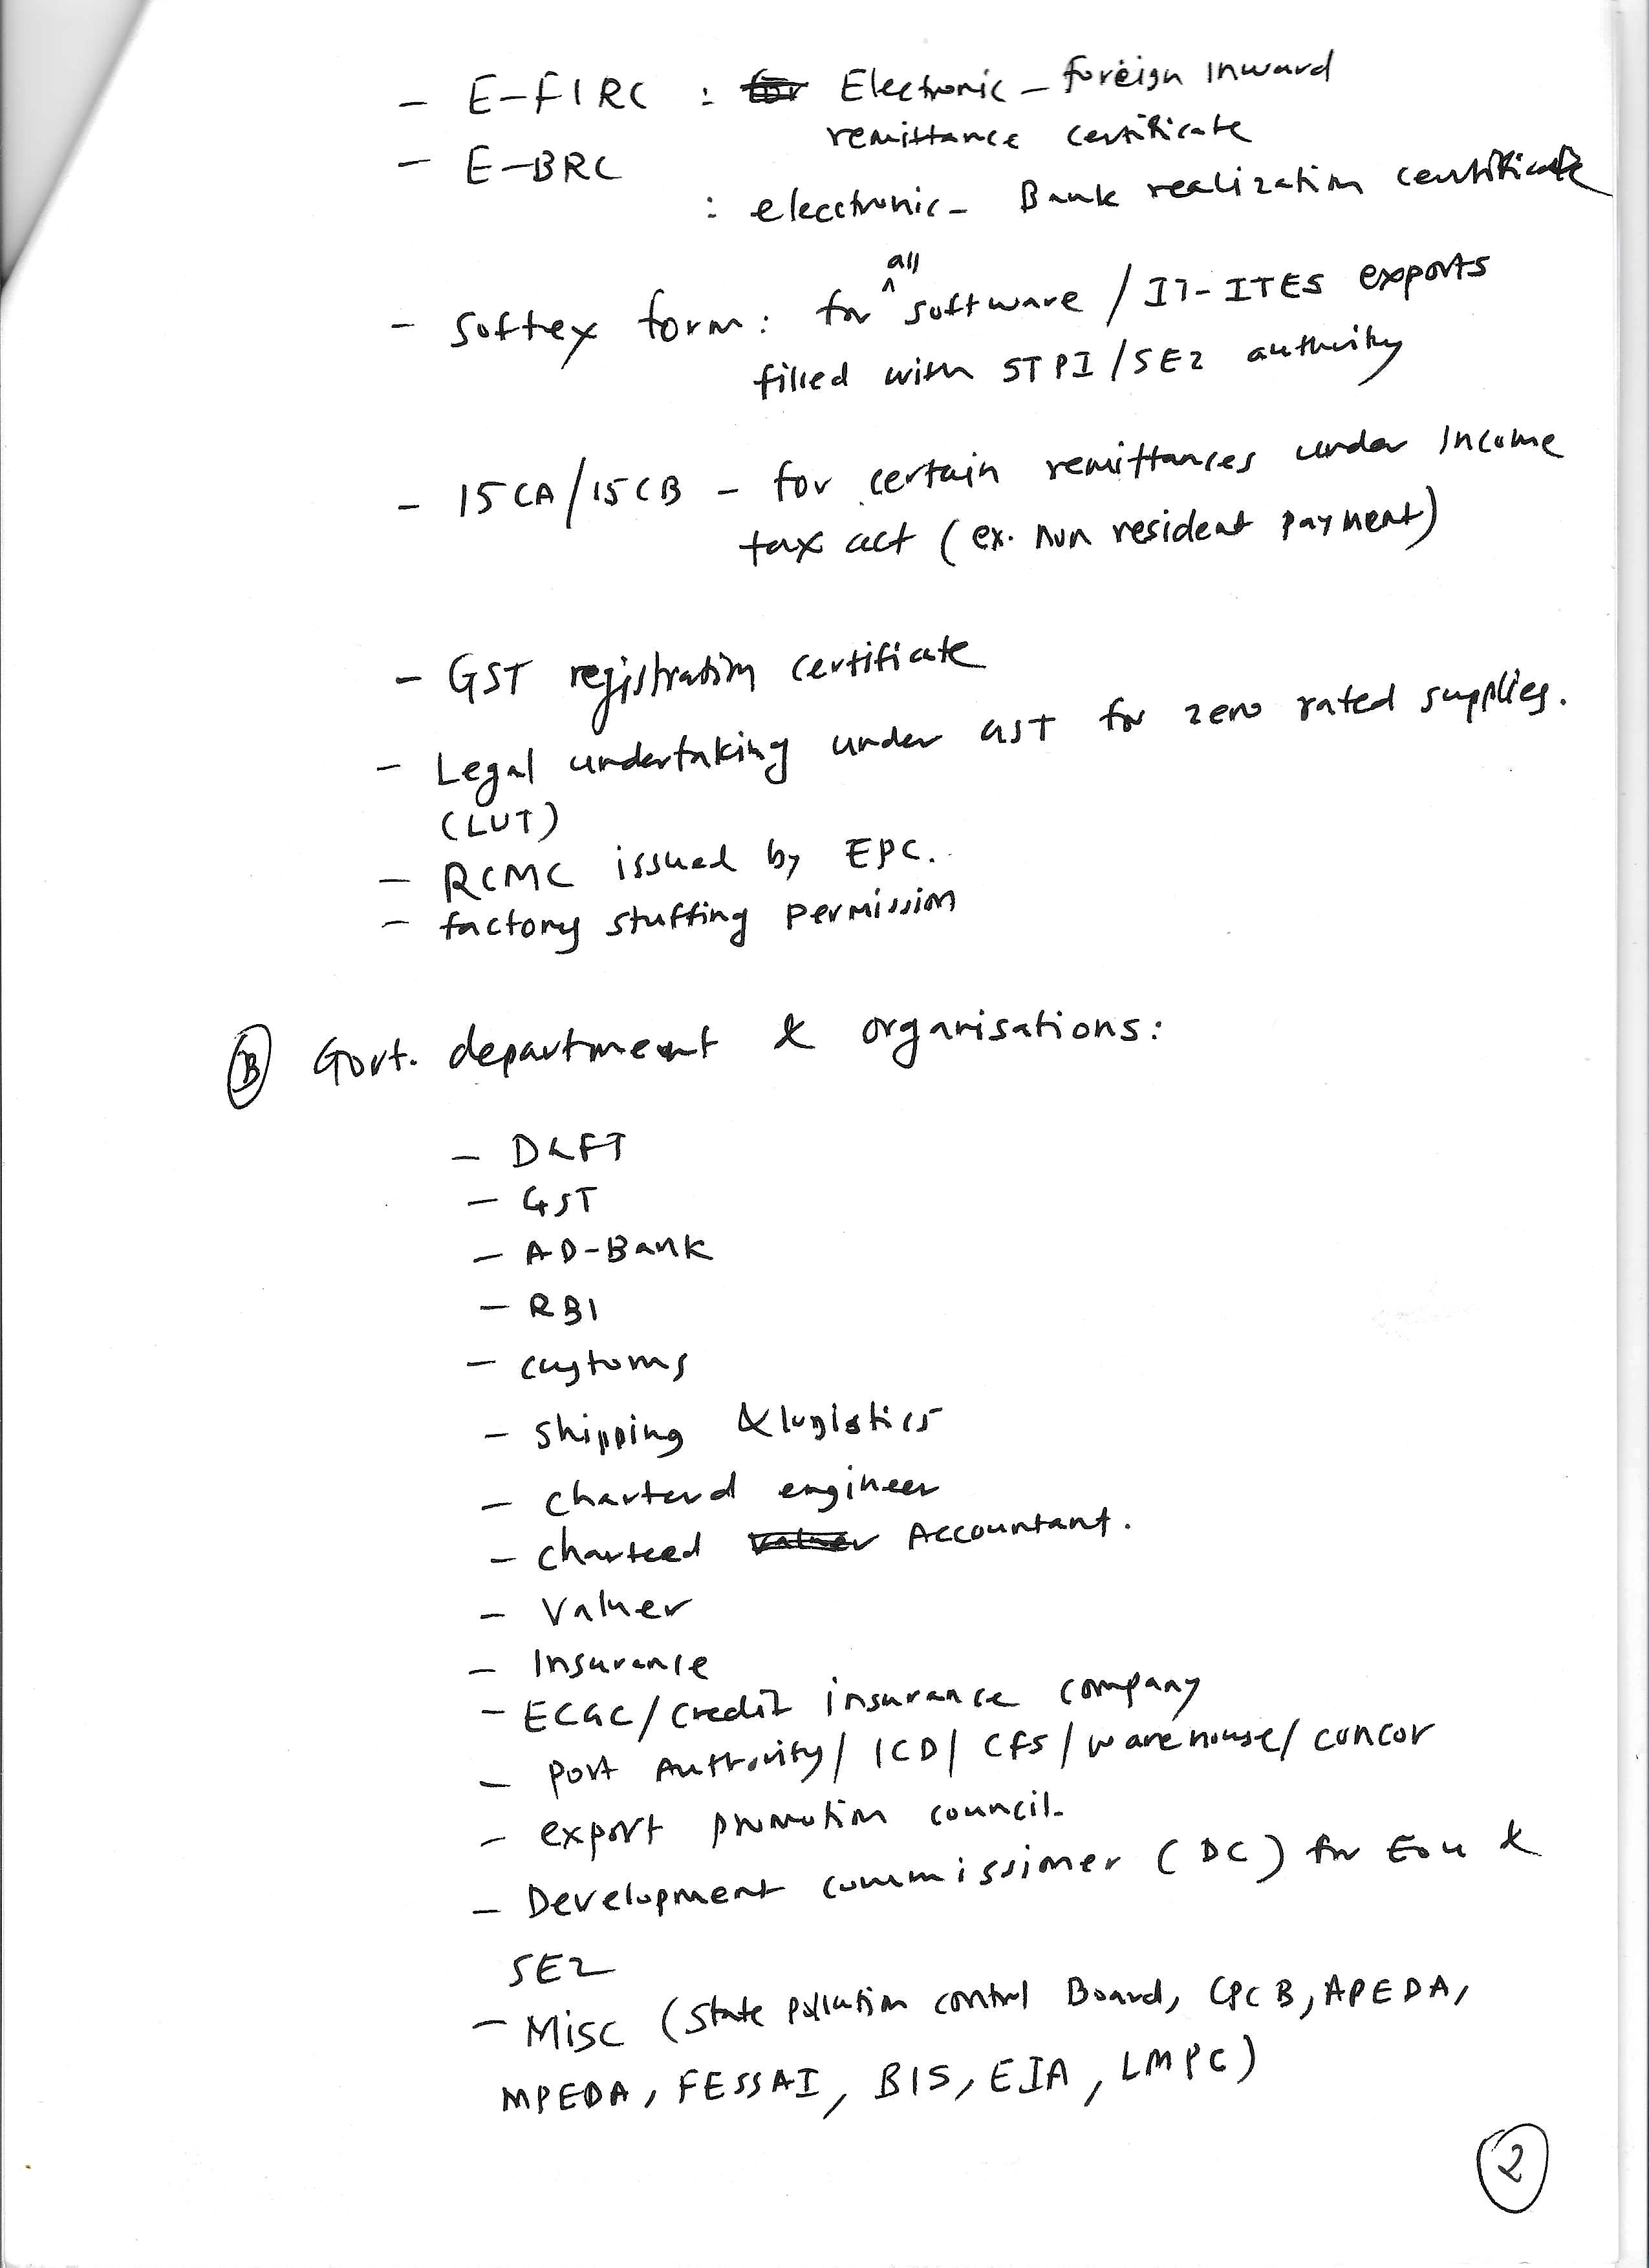 - E-FIRC : for Electronic - foreign Inward
remittance certificate
- E-BRC
: elecctronic - Bank realization certificate
all
- Softex form: for ^ software / IT-ITES exports
filled with STPI / SEZ authority
- 15CA/15CB - for certain remittances under Income
tax act (ex. non resident payment)
- GST registration certificate
- Legal undertaking under GST for zero rated supplies.
(LUT)
- RCMC issued by EPC.
- factory stuffing permission
(B) Govt. department & organisations:
- DGFT
- GST
- AD-Bank
- RBI
- customs
- shipping & logistics
- charterd engineer
- charteed valuer Accountant.
- Valuer
- Insurance
- ECGC/credit insurance company
- port Authority/ ICD/ CFS / warehouse/ concor
- export promotion council-
- Development commissioner (DC) for Eou &
SEZ
- Misc (State pollution control Board, CPCB, APEDA,
MPEDA, FESSAI, BIS, EIA, LMPC)
2